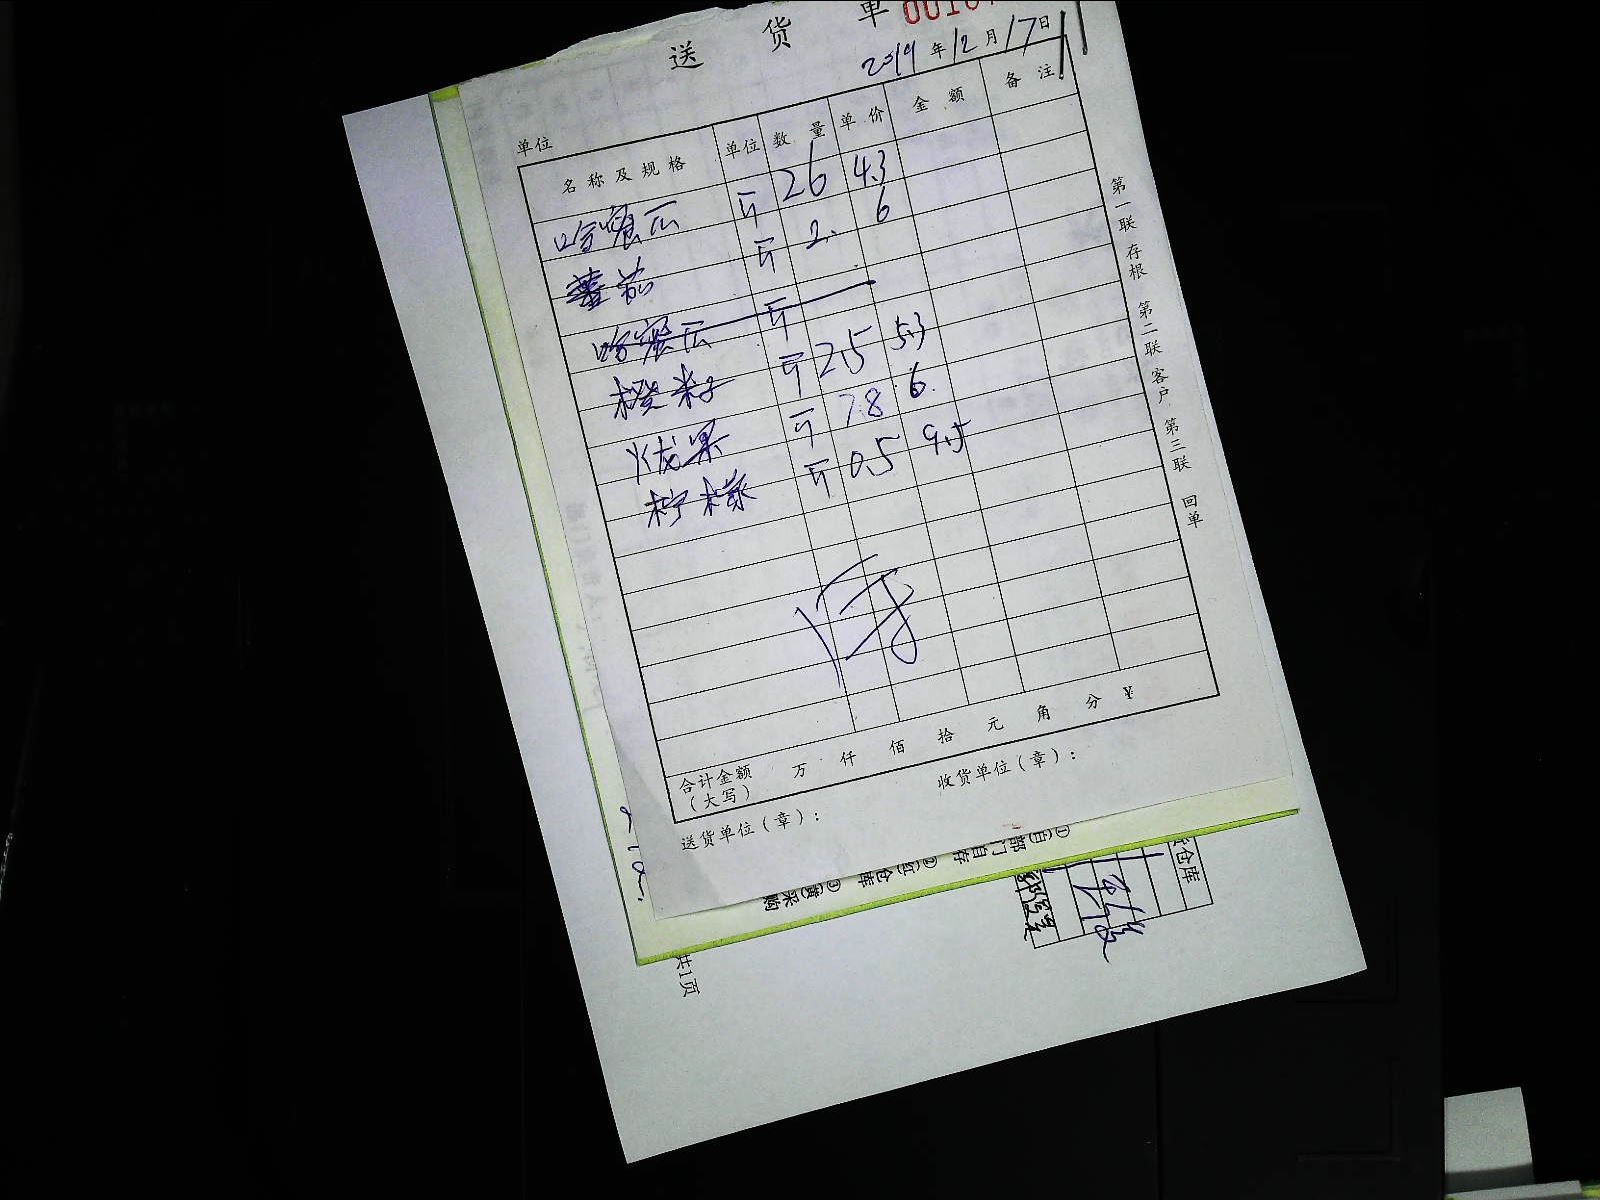 送 货 单
2019 年 12 月 17 日
单位
名称及规格 单位 数量 单价 金额 备注
哈蜜瓜 斤 26 4.3
蕃茄 斤 2. 6
哈蜜瓜 斤
橙籽 斤 2.5 5.3
火龙果 斤 7.8 6.
柠檬 斤 0.5 9.5
合计金额 万 仟 佰 拾 元 角 分 ¥
（大写）
送货单位（章）： 收货单位（章）：
第一联 存根 第二联 客户 第三联 回单
①(白)部门自存
②(红)仓库
③(黄)采购
仓库
共1页